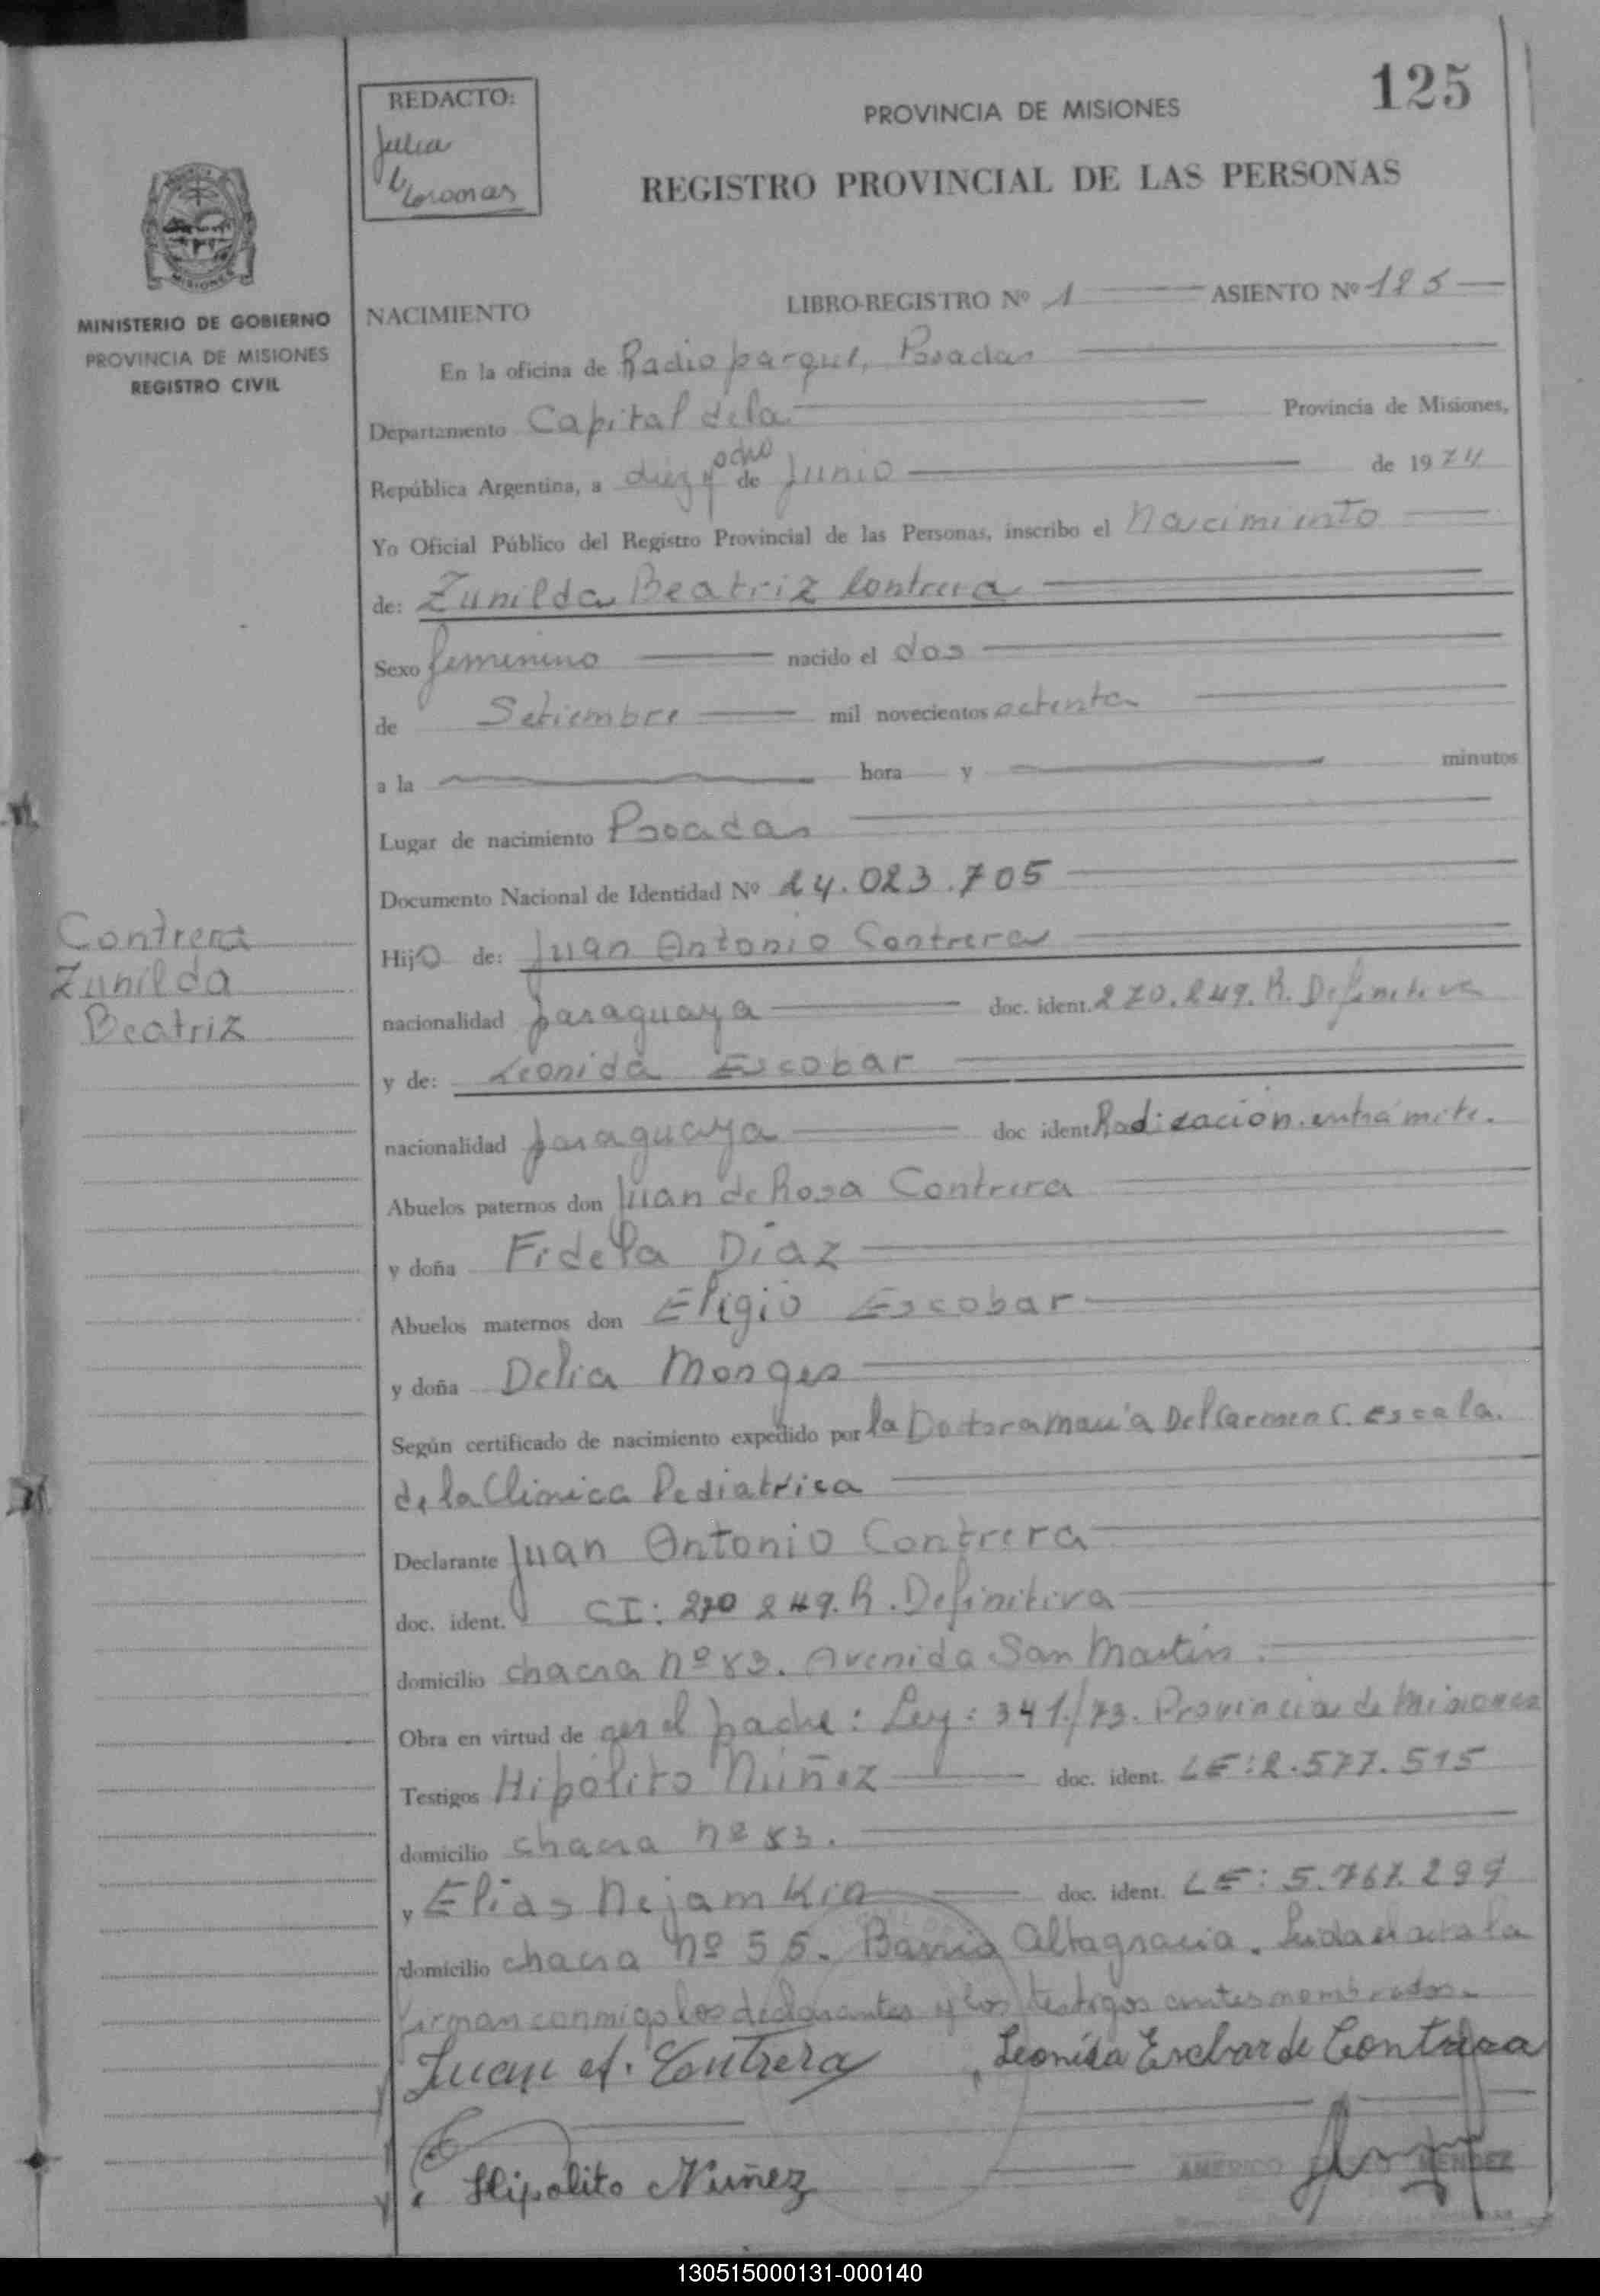 125
REDACTO:
Julia
PROVINCIA DE MISIONES
REGISTRO PROVINCIAL DE LAS PERSONAS
MISIONES
MINISTERIO DE GOBIERNO
PROVINCIA DE MISIONES
REGISTRO CIVIL
NACIMIENTO LIBRO-REGISTRO Nº 1 ASIENTO Nº 125
En la oficina de Radio parque, Posadas
Departamento Capital de la Provincia de Misiones,
República Argentina, a diez y ocho de Junio de 1974
Yo Oficial Público del Registro Provincial de las Personas, inscribo el Nacimiento
de: Zunilda Beatriz Contrera
Sexo femenino nacido el dos
de Setiembre mil novecientos setenta
a la hora y minutos
Lugar de nacimiento Posadas
Documento Nacional de Identidad Nº 24.023.705
Contrera
Zunilda
Beatriz
HijO de: Juan Antonio Contrera
nacionalidad paraguaya doc. ident. 270.249. R. Definitiva
y de: Leonida Escobar
nacionalidad paraguaya doc ident Radicación. entrámite.
Abuelos paternos don Juan de Rosa Contrera
y doña Fidela Diaz
Abuelos maternos don Eligio Escobar
y doña Delia Monges
Según certificado de nacimiento expedido por la Doctora María Del Carmen C. Escala.
de la Clinica Pediatrica
Declarante Juan Antonio Contrera
doc. ident. CI: 270 249. R. Definitiva
domicilio chacra nº 83. Avenida San Martín.
Obra en virtud de ser el padre: Ley: 341/73. Provincia de Misiones
Testigos Hipólito Núñez doc. ident. LE: 2.577.515
domicilio chacra nº 83.
y Elias Nejamkin doc. ident. LE: 5.767.299
domicilio chacra nº 55. Barrio Altagracia. Leida el acta la
firman conmigo los declarantes y los testigos antes nombrados.
Juan A. Contrera Leonida Escobar de Contrera
Hipolito Nuñez
AMERICO MENDEZ
130515000131-000140